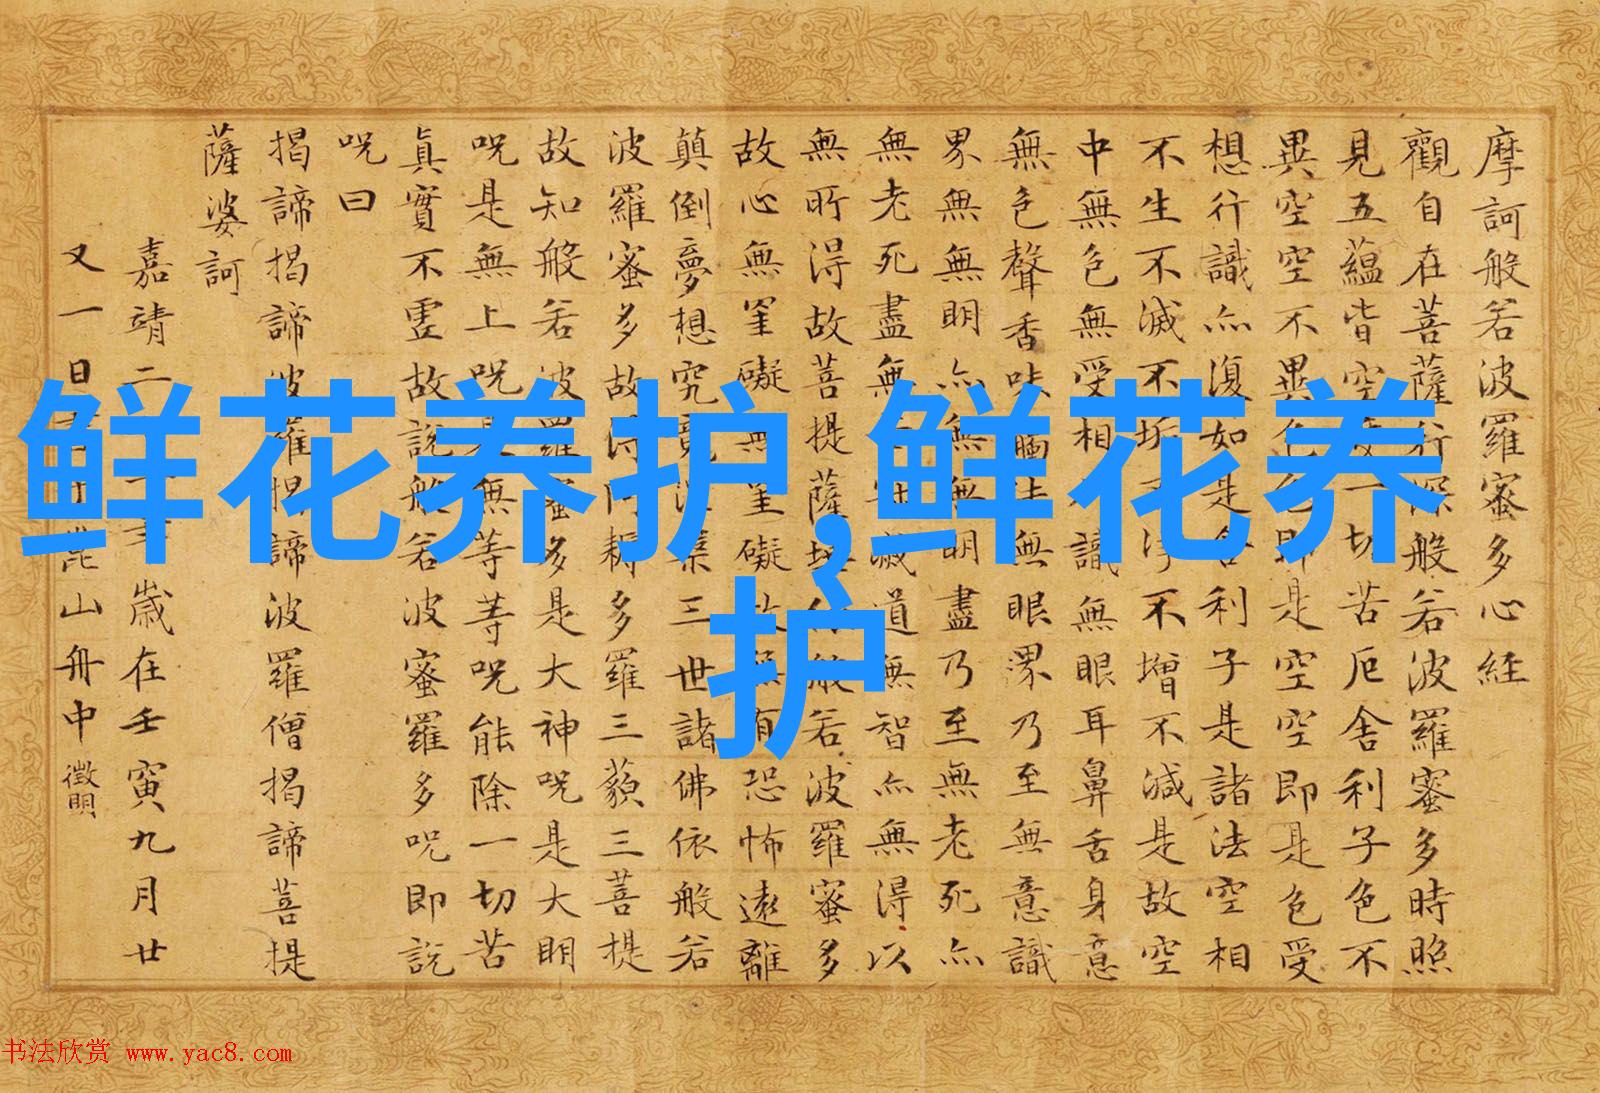 摩訶般若波羅蜜多心経
觀自在菩薩行深般若波羅蜜多時照
見五蘊皆空度一切苦厄舍利子色不
異空空不異色色即是空空即是色受
想行識亦復如是舍利子是諸法空相
不生不滅不垢不淨不增不減是故空
中無色無受相識無眼耳鼻舌身意
無色聲香味觸法無眼界乃至無意識
界無無明亦無無明盡乃至無老死亦
無老死盡無滅道無智亦無得以
無所得故菩提薩埵般若波羅蜜多
故心無罣礙無罣礙故無有恐怖遠離
顛倒夢想究竟三世諸佛依般若
波羅蜜多故得阿耨多羅三藐三菩提
故知般若波羅蜜多是大神咒是大明
咒是無上咒是無等等咒能除一切苦
真實不虛故説般若波蜜羅多咒即説
咒曰
揭諦揭諦波羅揭諦波羅僧揭諦菩提
薩婆訶
嘉靖二十歲在壬寅九月廿
又一日山舟中 徵明
鲜花养护,鲜花养
护
书法欣赏 www.yac8.com